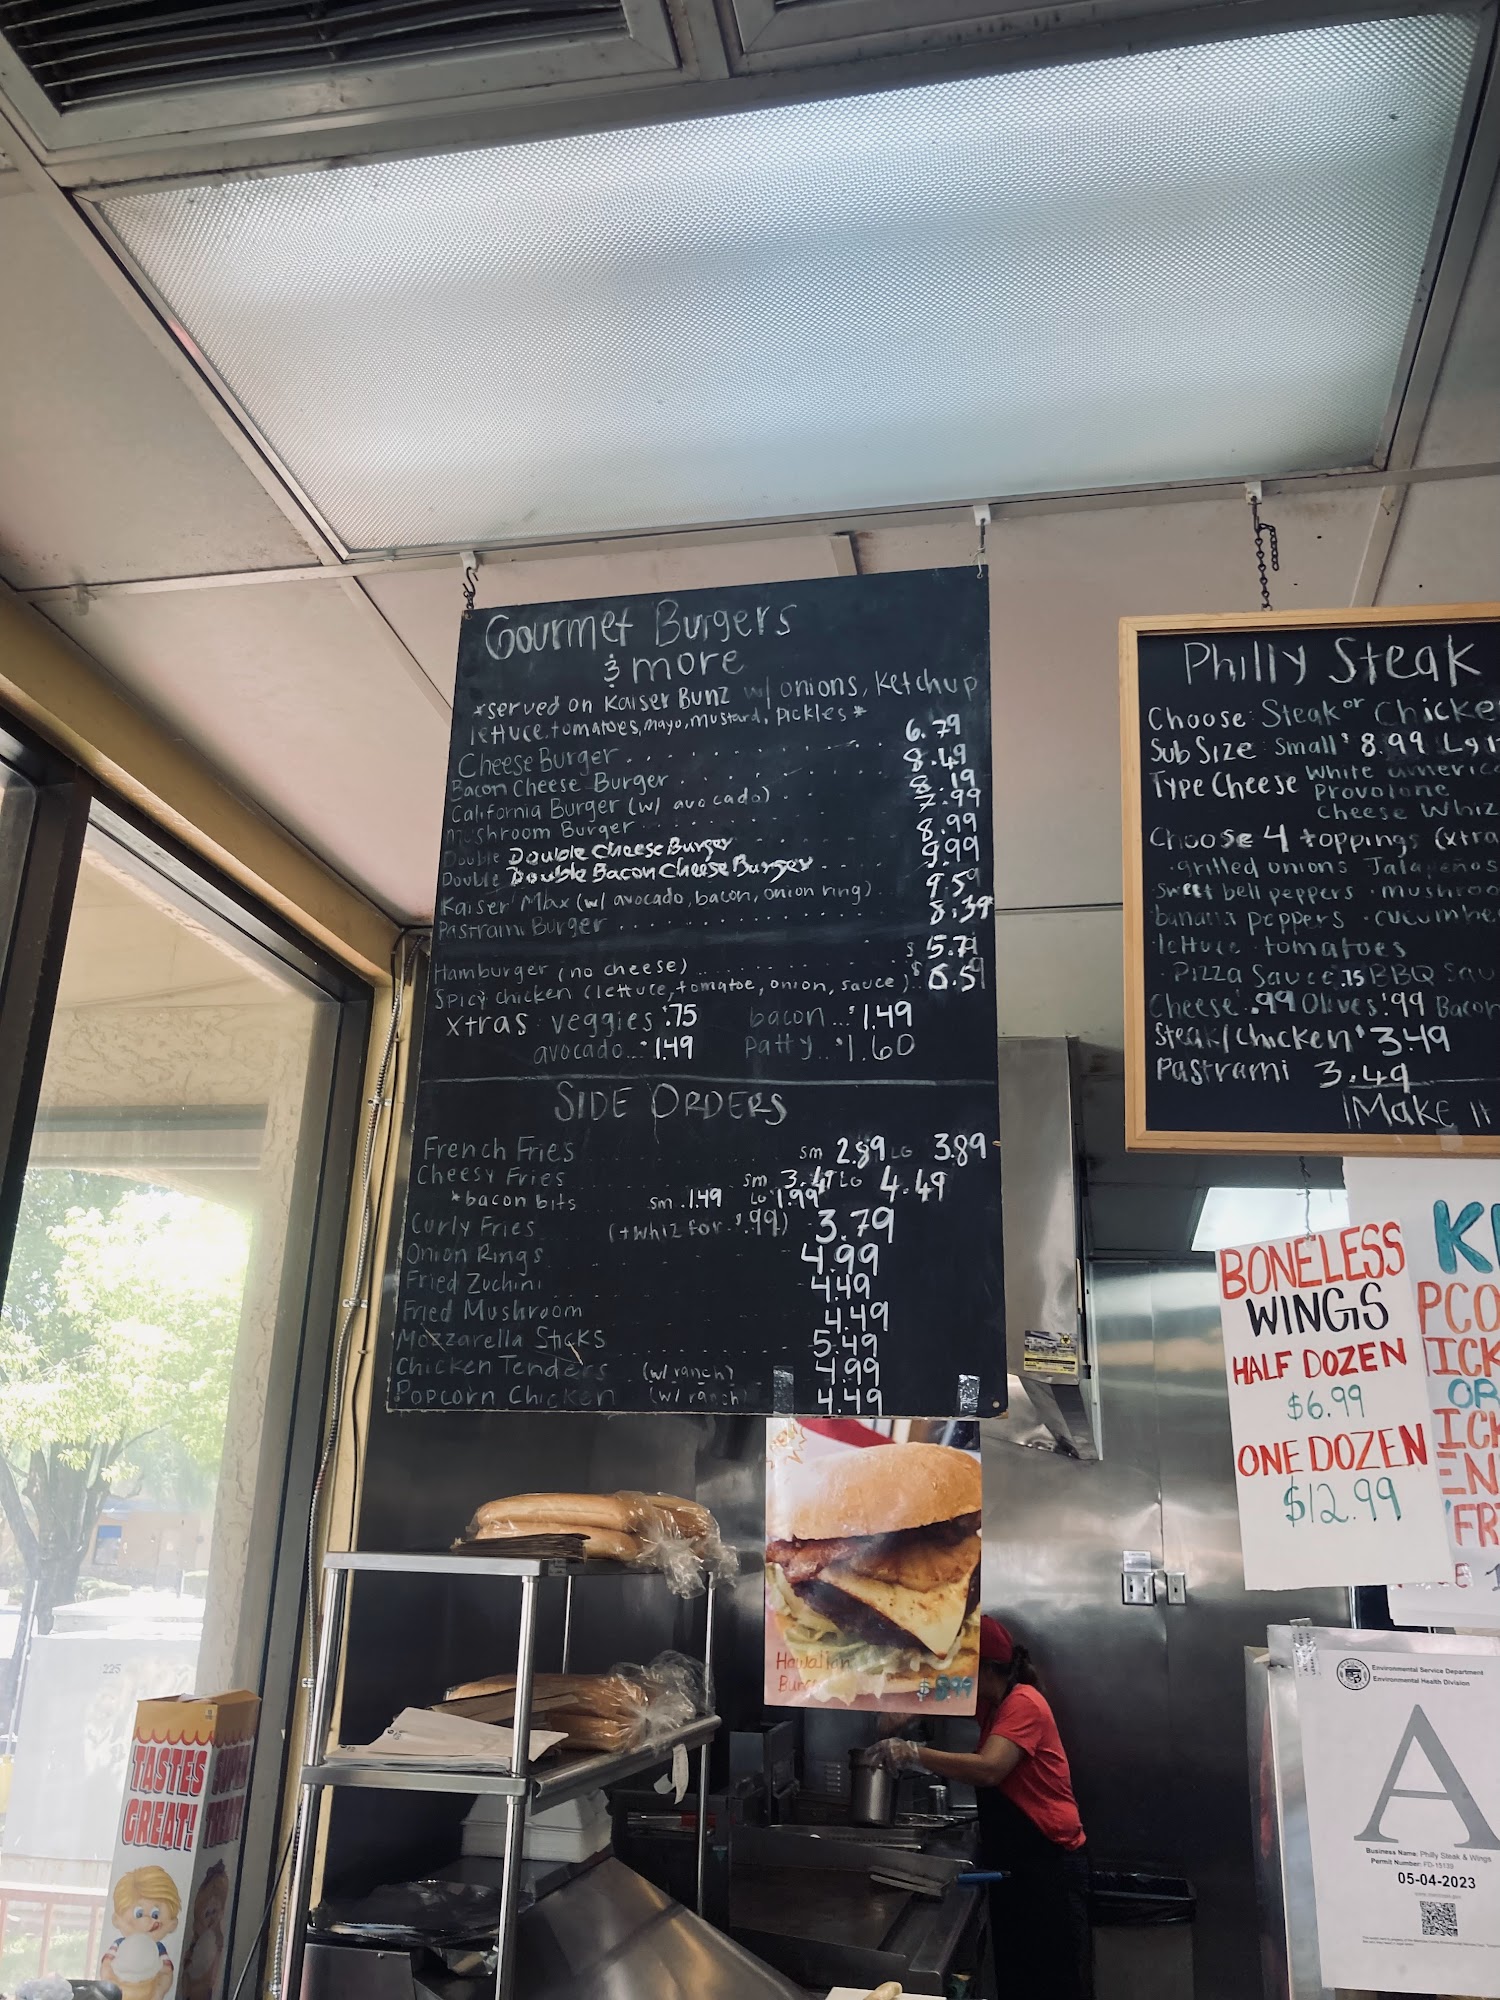 Gourmet Burgers
& more
*served on Kaiser Bunz w/ onions, Ketchup
lettuce, tomatoes, mayo, mustard, pickles*
Cheese Burger 6.79
Bacon Cheese Burger 8.49
California Burger (w/ avocado) 8.19
Mushroom Burger 7.99
Double Double Cheese Burger 8.99
Double Double Bacon Cheese Burger 9.99
Kaiser Max (w/ avocado, bacon, onion ring) 9.59
Pastrami Burger 8.39
Hamburger (no cheese) $5.79
Spicy chicken (lettuce, tomatoe, onion, sauce) $6.59
Xtras veggies .75 bacon $1.49
avocado $1.49 Patty $1.60
SIDE ORDERS
French Fries sm 2.89 LG 3.89
Cheesy Fries sm 3.49 LG 4.49
*bacon bits sm .1.49 LG 1.99
Curly Fries (+whiz for $.99) 3.79
Onion Rings 4.99
Fried Zuchini 4.49
Fried Mushroom 4.49
Mozzarella Sticks 5.49
Chicken Tenders (w/ ranch) 4.99
Popcorn Chicken (w/ ranch) 4.49
Philly Steak
Choose: Steak or Chicke
Sub Size: Small $8.99 Lg
Type Cheese White americ
Provolone
Cheese Whiz
Choose 4 toppings (xtra
·grilled onions Jalapeños
·sweet bell peppers ·mushroo
·banana peppers ·cucumbe
·lettuce ·tomatoes
·Pizza Sauce .75 BBQ Sau
Cheese .99 Olives .99 Bacon
Steak/Chicken $3.49
Pastrami 3.49
Make it
BONELESS
WINGS
HALF DOZEN
$6.99
ONE DOZEN
$12.99
K
PCO
ICK
OR
ICK
EN
FR
Hawaiian
Burger
225
TASTES SUPER
GREAT! TREAT
Environmental Service Department
Environmental Health Division
A
Business Name: Philly Steak & Wings
Permit Number: FD-15139
05-04-2023